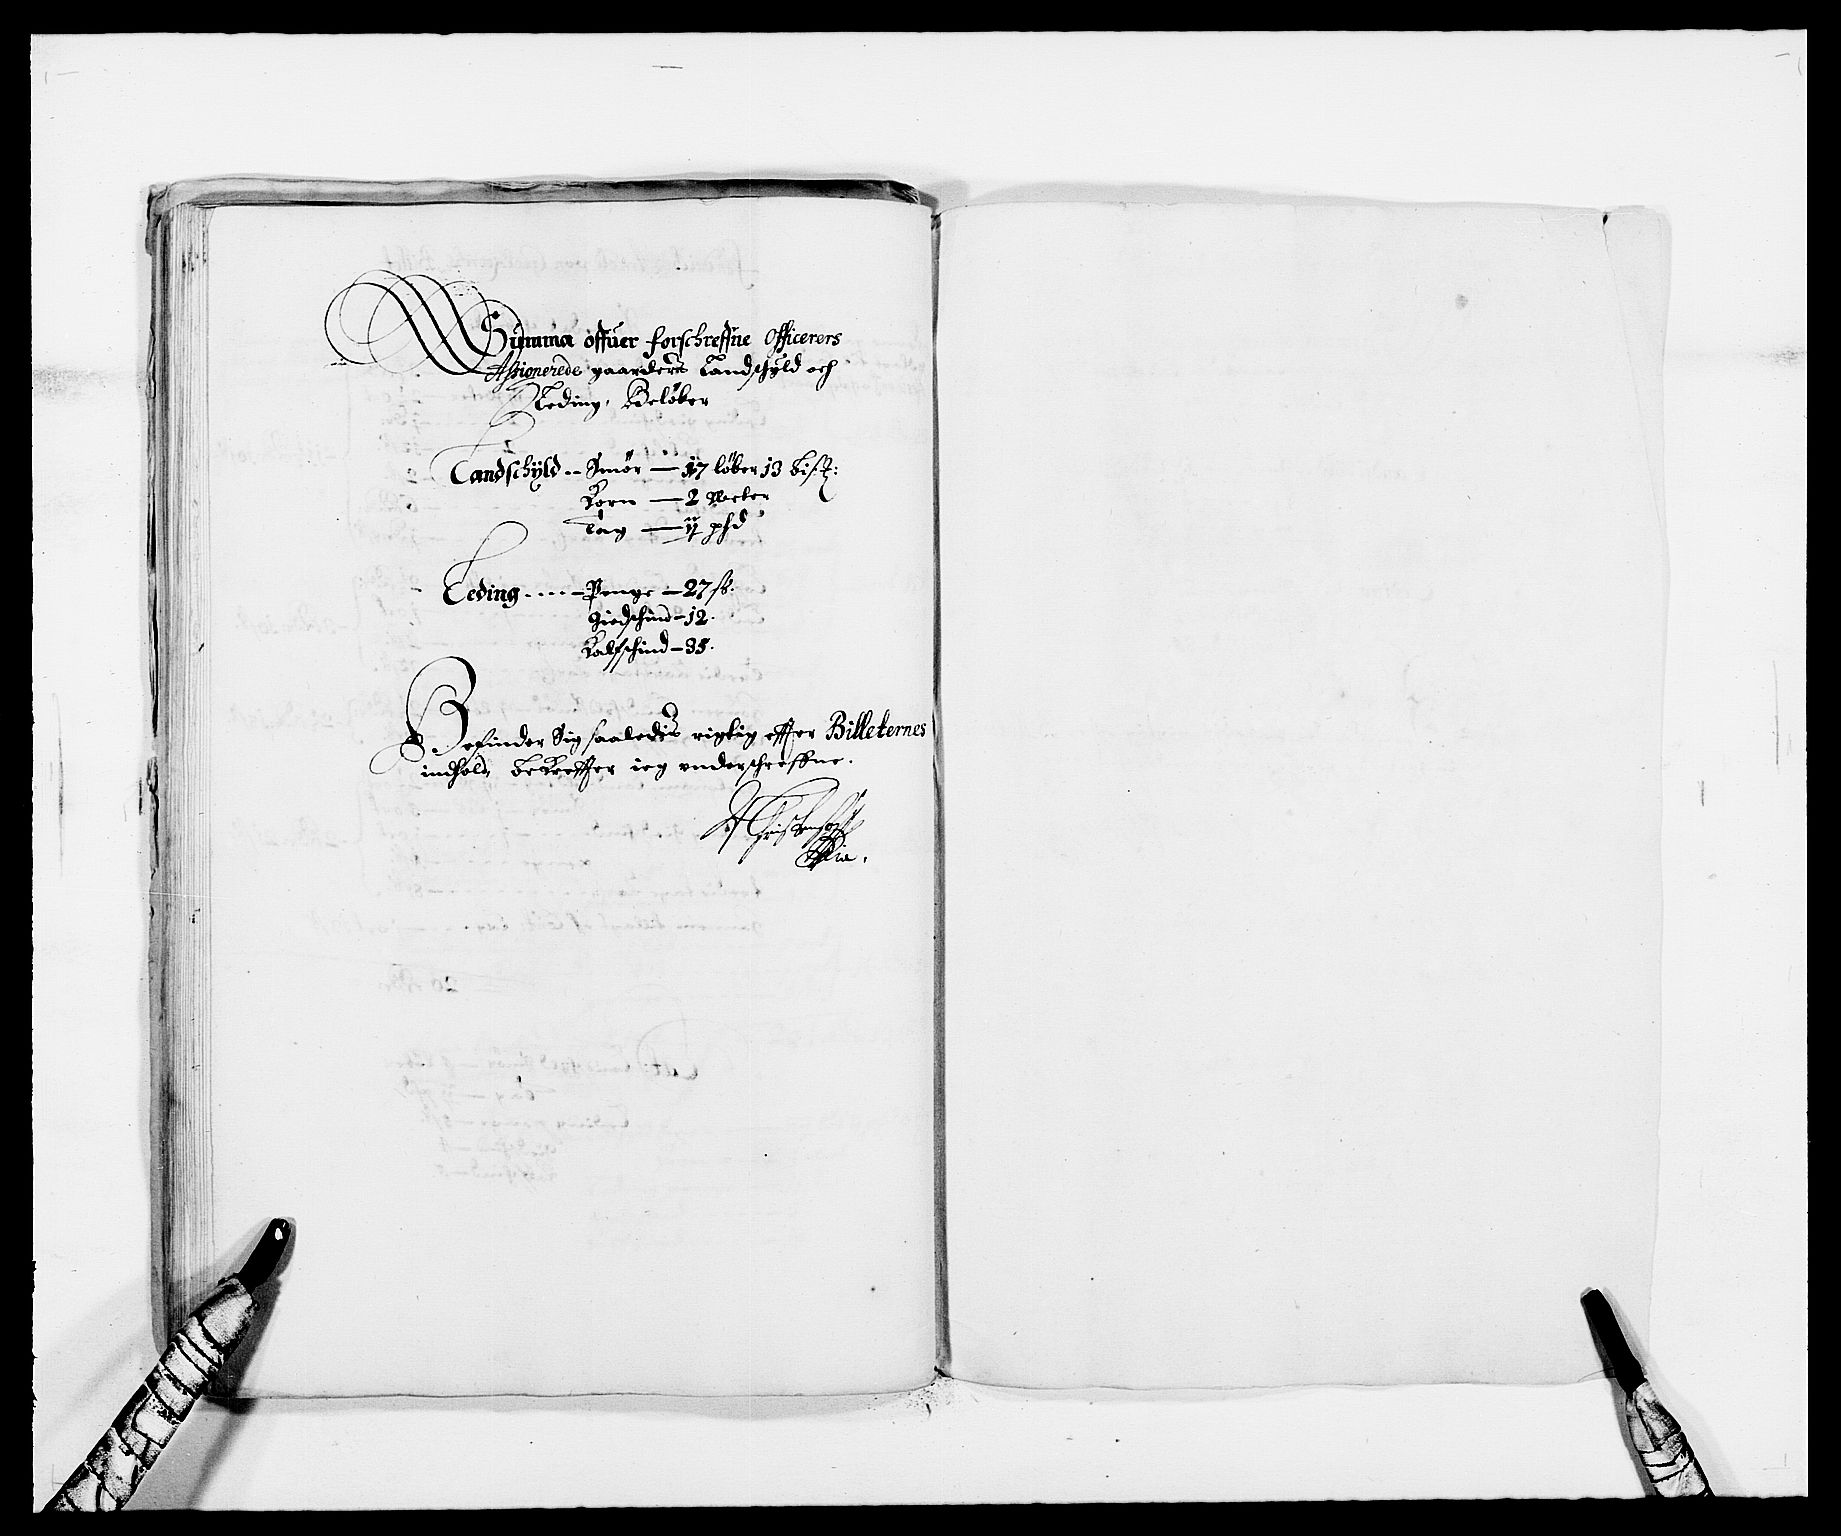 Summa offuer forschreffne Officerers
Assionerede gaarders Landschyld och
Leding, Beløber
Landschyld -- Smør — 17 løber 13
Korn — 2
Lag — 11 phd
Leding ---- Penge — 27 sk.
Giedschind — 12.
Kalfschind — 35.
Befinder Sig saaledis rigtig effter Billeternes
indhold, bekreffter ieg underschreffne.